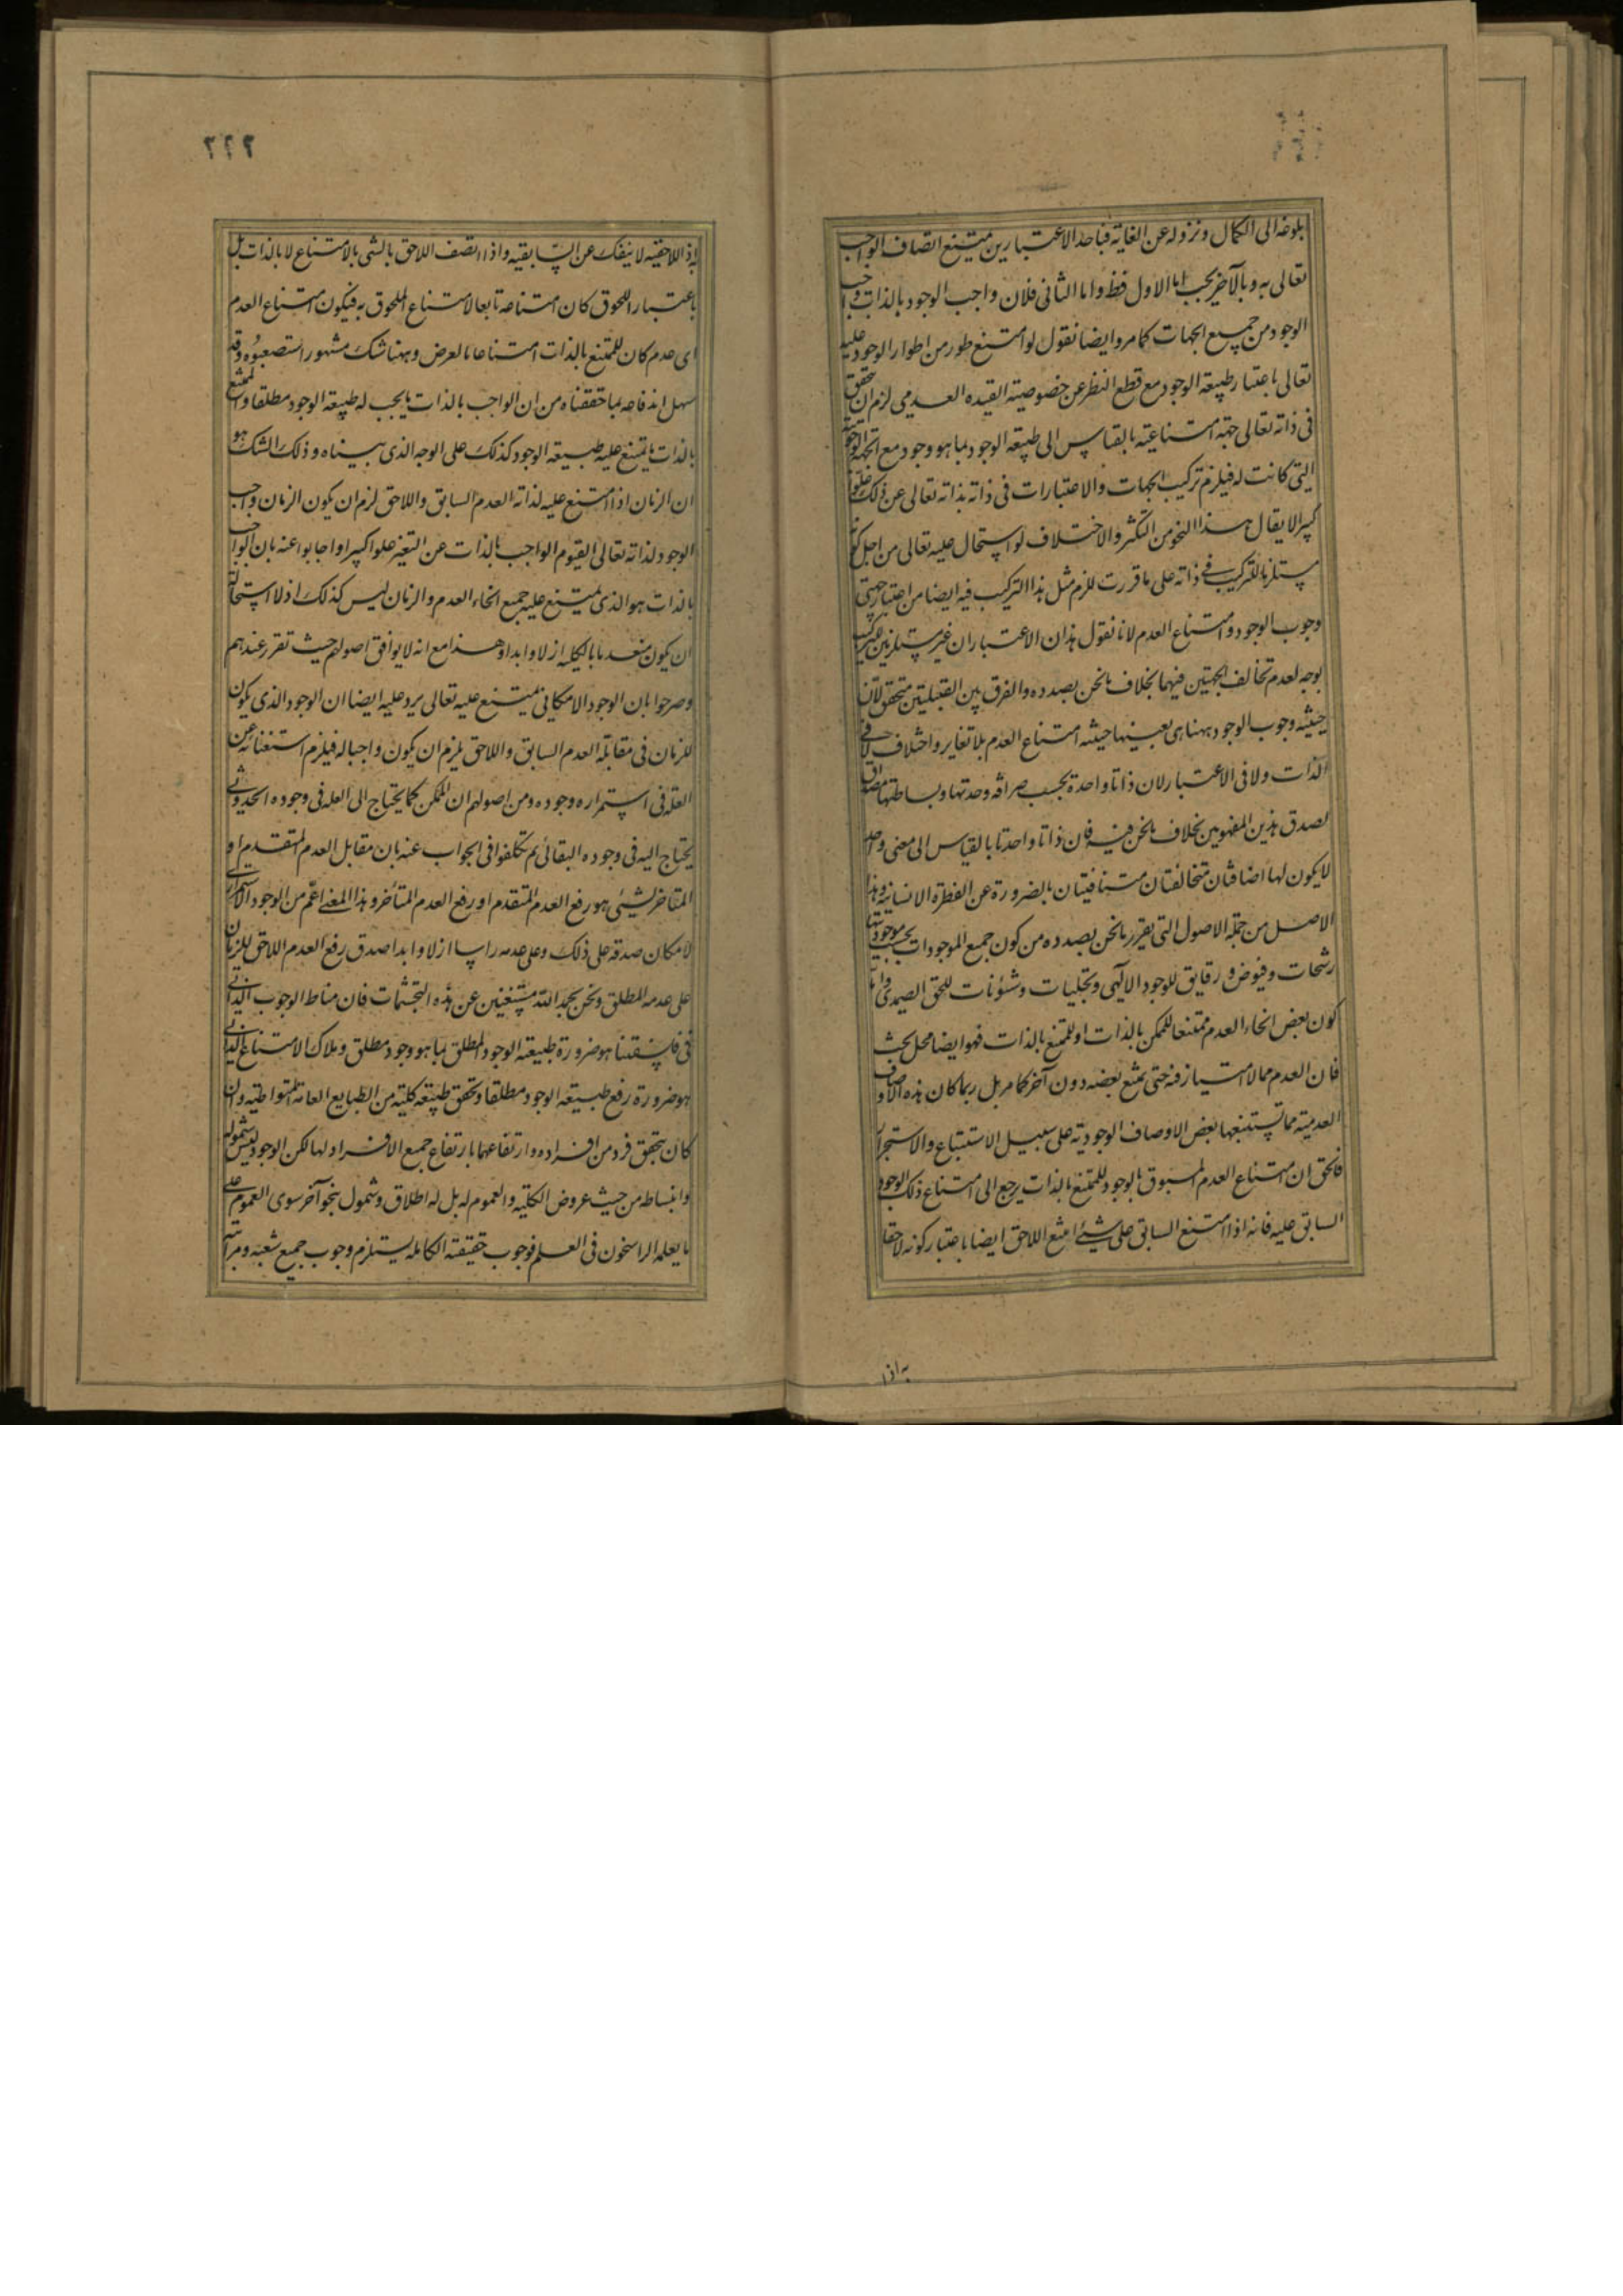 بلوغه الى الكمال ونزوله عن الغاية فباحد الاعتبارين يمتنع اتصاف الواجب
تعالى به وبالآخر يجب اما الاول فظ واما الثانى فلان واجب الوجود بالذات واجب
الوجود من جميع الجهات كما مر وايضا نقول لو امتنع طور من اطوار الوجود عليه
تعالى باعتبار طبيعة الوجود مع قطع النظر عن خصوصية القيد العدمى لزم ان يتحقق
فى ذاته تعالى جهة امتناعية بالقياس الى طبيعة الوجود بما هو وجود مع الجهة الوجوبية
التى كانت له فيلزم تركيب الجهات والاعتبارات فى ذاته بذاته تعالى عن ذلك علوا
كبيرا لا يقال هذا النحو من التكثر والاختلاف لو استحال عليه تعالى من اجل كونه
مستلزما للتركيب فى ذاته على ما قررت للزم مثل هذا التركيب فيه ايضا من اعتبار جهتى
وجوب الوجود وامتناع العدم لانا نقول هذان الاعتباران غير مستلزمين للتركيب
بوجه لعدم تخالف الجهتين فيهما بخلاف ما نحن بصدده والفرق بين القبيلتين متحقق لان
حيثية وجوب الوجود ههنا هى بعينها حيثية امتناع العدم بلا تغاير واختلاف لا فى
الذات ولا فى الاعتبار لان ذاتا واحدة بحسب صرافة وحدتها وبساطتها مصداق
لصدق هذين المفهومين بخلاف ما نحن فيه فان ذاتا واحدتا بالقياس الى معنى واحد
لا يكون لها اضافتان متخالفتان متنافيتان بالضرورة عن الفطرة الانسانية وهذا
الاصل من جملة الاصول التى يقرر ما نحن بصدده من كون جميع الموجودات بحسب موجوديتها
رشحات وفيوض ورقايق للوجود الالهى وتجليات وشئونات للحق الصمدى واما
كون بعض انحاء العدم ممتنعا للممكن بالذات او للممتنع بالذات فهو ايضا محل بحث
فان العدم مما لا امتياز فيه حتى يمتنع بعضه دون آخر كما مر بل ربما كان هذه الاوصاف
العدمية مما يستتبعها بعض الاوصاف الوجودية على سبيل الاستتباع والاستجرار
فالحق ان امتناع العدم المسبوق بالوجود للممتنع بالذات يرجع الى امتناع ذلك الوجود
السابق عليه فانه اذا امتنع السابق على شئ امتنع اللاحق ايضا باعتبار كونه لاحقا
به اذا
٢٢٢
به اذ اللاحقية لا ينفك عن السابقية واذا اتصف اللاحق بالشى بالامتناع لا بالذات بل
باعتبار اللحوق كان امتناعه تابعا لامتناع الملحوق به فيكون امتناع العدم
اى عدم كان للممتنع بالذات امتناعا بالعرض وههنا شك مشهور استصعبوه وقد
سهل اندفاعه بما حققناه من ان الواجب بالذات ما يجب له طبيعة الوجود مطلقا والممتنع
بالذات ما يمتنع عليه طبيعة الوجود كذلك على الوجه الذى بيناه وذلك الشك هو
ان الزمان اذا امتنع عليه لذاته العدم السابق واللاحق لزم ان يكون الزمان واجب
الوجود لذاته تعالى القيوم الواجب بالذات عن التغير علوا كبيرا واجابوا عنه بان الواجب
بالذات هو الذى يمتنع عليه جميع انحاء العدم والزمان ليس كذلك اذ لا استحالة
ان يكون منعدما بالكلية ازلا وابدا وهذا مع انه لا يوافق اصولهم حيث تقرر عندهم
وصرحوا بان الوجود الامكانى يمتنع عليه تعالى يرد عليه ايضا ان الوجود الذى يكون
للزمان فى مقابلة العدم السابق واللاحق يلزم ان يكون واجبا له فيلزم استغنائه عن
العلة فى استمراره وجوده ومن اصولهم ان الممكن كما يحتاج الى العلة فى وجوده الحدوثى
يحتاج اليه فى وجوده البقائى ثم تكلفوا فى الجواب عنه بان مقابل العدم المتقدم او
المتاخر لشئ هو رفع العدم المتقدم او رفع العدم المتأخر وهذا المعنى اعم من الوجود الاستمرارى
لامكان صدقه على ذلك وعلى عدمه راسا ازلا وابدا صدق رفع العدم اللاحق للزمان
على عدمه المطلق ونحن بحمد الله مستغنين عن هذه التجشمات فان مناط الوجوب الذاتى
فى فلسفتنا هو ضرورة طبيعة الوجود المطلق بما هو وجود مطلق وملاك الامتناع الذاتى
هو ضرورة رفع طبيعة الوجود مطلقا وتحقق طبيعة كلية من الطبايع العامة المتواطية وان
كان يتحقق فرد من افراده وارتفاعها بارتفاع جميع الافراد لها لكن الوجود ليس شموله
وانبساطه من حيث عروض الكلية والعموم له بل له اطلاق وشمول بنحو آخر سوى العموم على
ما يعلمه الراسخون فى العلم فوجوب حقيقته الكاملة يستلزم وجوب جميع شعبه ومراتبه